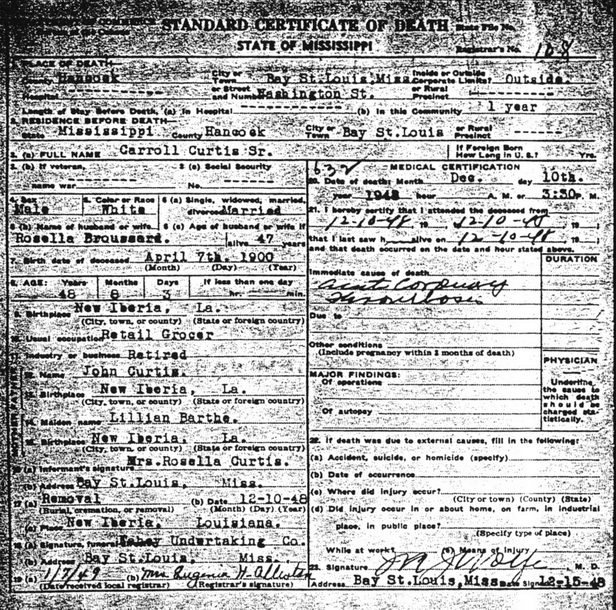 STANDARD CERTIFICATE OF DEATH State File No.
STATE OF MISSISSIPPI Registrar's No. 108
1. PLACE OF DEATH
County Hancock City or Town Bay St.Louis,Miss. Inside or Outside Corporate Limits? Outside.
Hospital or Street and Number Washington St. or Rural Precinct
Length of Stay Before Death, (a) In Hospital (b) In this Community 1 year
2. RESIDENCE BEFORE DEATH
State Mississippi County Hancock City or Town Bay St.Louis or Rural Precinct
3. (a) FULL NAME Carroll Curtis Sr. If Foreign Born How Long in U.S.? Yrs.
3. (b) If veteran, name war 3 (c) Social Security No.
4. Sex Male 5. Color or Race White 6 (a) Single, widowed, married, divorced Married
6 (b) Name of husband or wife Rosella Broussard. 6 (c) Age of husband or wife if alive 47 years
7. Birth date of deceased April 7th. 1900
(Month) (Day) (Year)
8. AGE: Years Months Days If less than one day
48 8 3 hr. min.
9. Birthplace New Iberia, La.
(City, town, or county) (State or foreign country)
10. Usual occupation Retail Grocer
11. Industry or business Retired
12. Name John Curtis.
13. Birthplace New Iberia, La.
(City, town, or county) (State or foreign country)
14. Maiden name Lillian Barthe.
15. Birthplace New Iberia, La.
(City, town, or county) (State or foreign country)
16 (a) Informant's signature Mrs.Rosella Curtis.
(b) Address Bay St.Louis, Miss.
17 (a) Removal (b) Date 12-10-48
(Burial, cremation, or removal) (Month) (Day) (Year)
(c) Place New Iberia, Louisiana.
18 (a) Signature, funeral Fahey Undertaking Co.
(b) Address Bay St.Louis, Miss.
19 (a) 1/7/49 (b) Mrs Eugenia H.
(Date received local registrar) (Registrar's signature)
632 MEDICAL CERTIFICATION
20. Date of death: Month Dec. day 10th.
year 1948 hour A. M. or 3:30 P. M.
21. I hereby certify that I attended the deceased from
12-10-48 19 to 12-10-48 19
that I last saw h alive on 12-10-48 19
and that death occurred on the date and hour stated above.
DURATION
Immediate cause of death
acute Coronary
Thrombosis
Due to
Other conditions
(Include pregnancy within 3 months of death)
PHYSICIAN
MAJOR FINDINGS:
Of operations
Of autopsy
Underline the cause to which death should be charged statistically.
22. If death was due to external causes, fill in the following:
(a) Accident, suicide, or homicide (specify)
(b) Date of occurrence
(c) Where did injury occur?
(City or town) (County) (State)
(d) Did injury occur in or about home, on farm, in industrial
place, in public place?
(Specify type of place)
While at work? (e) Means of injury
23. Signature M. D.
Address Bay St.Louis,Miss Date Signed 12-15-48